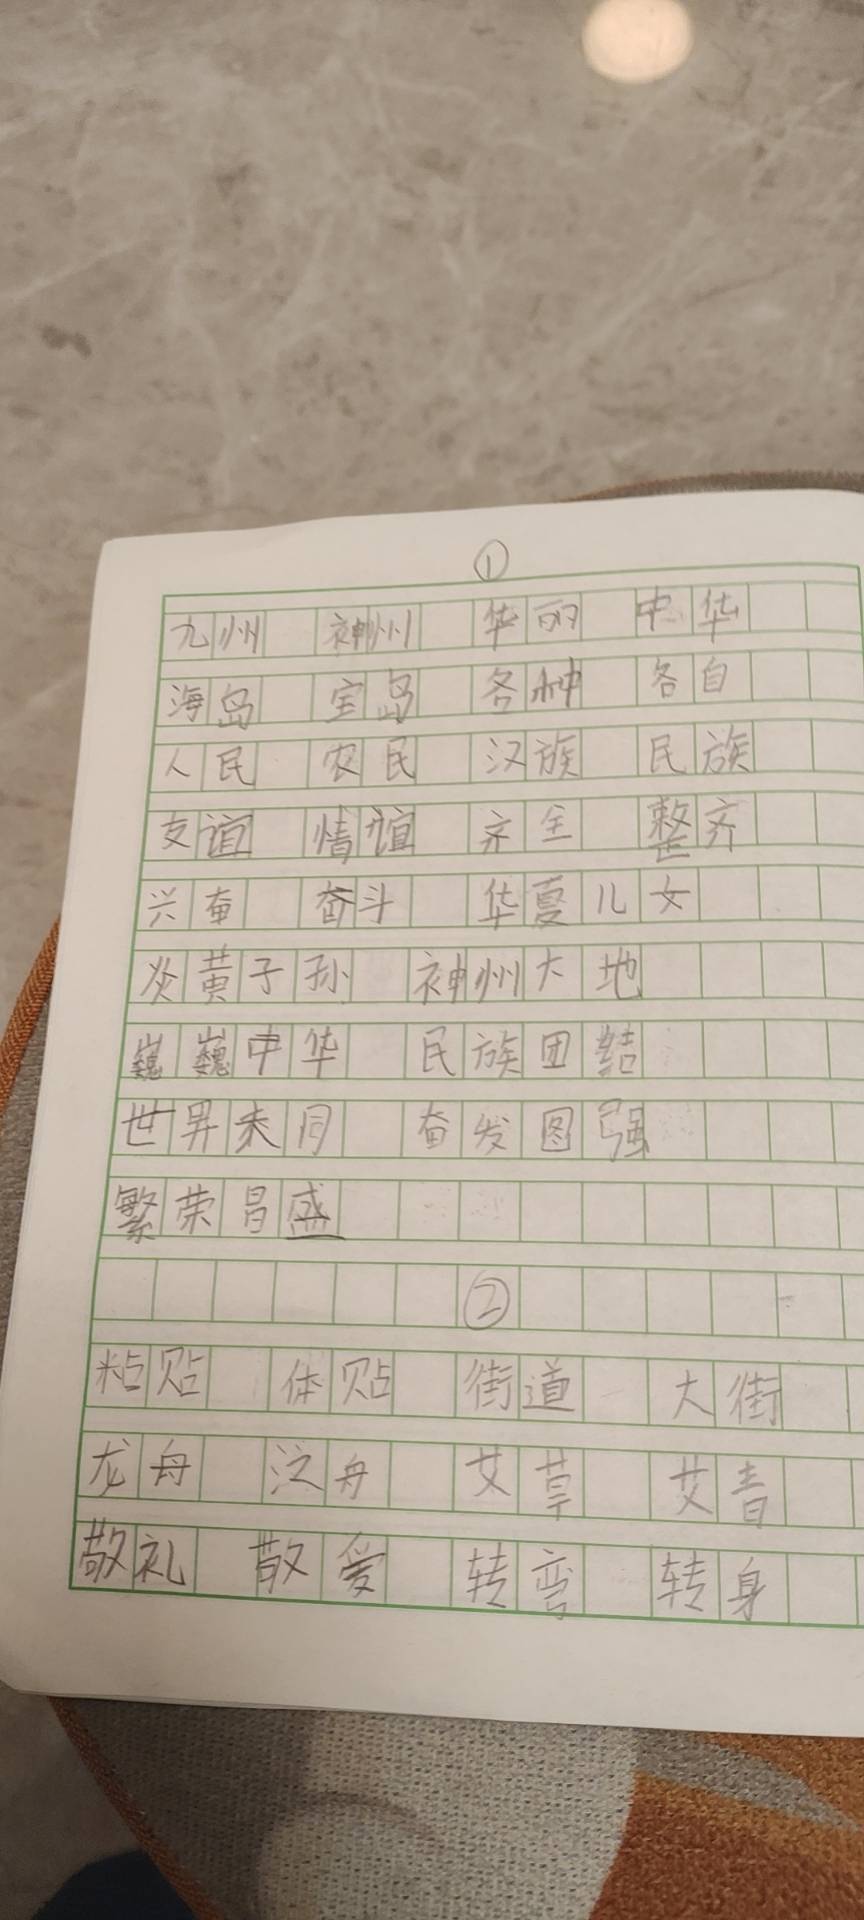 ①
九州 神州 华丽 中华
海岛 宝岛 各种 各自
人民 农民 汉族 民族
友谊 情谊 齐全 整齐
兴奋 奋斗 华夏儿女
炎黄子孙 神州大地
巍巍中华 民族团结
世界大同 奋发图强
繁荣昌盛
②
粘贴 体贴 街道 大街
龙舟 泛舟 艾草 艾青
敬礼 敬爱 转弯 转身